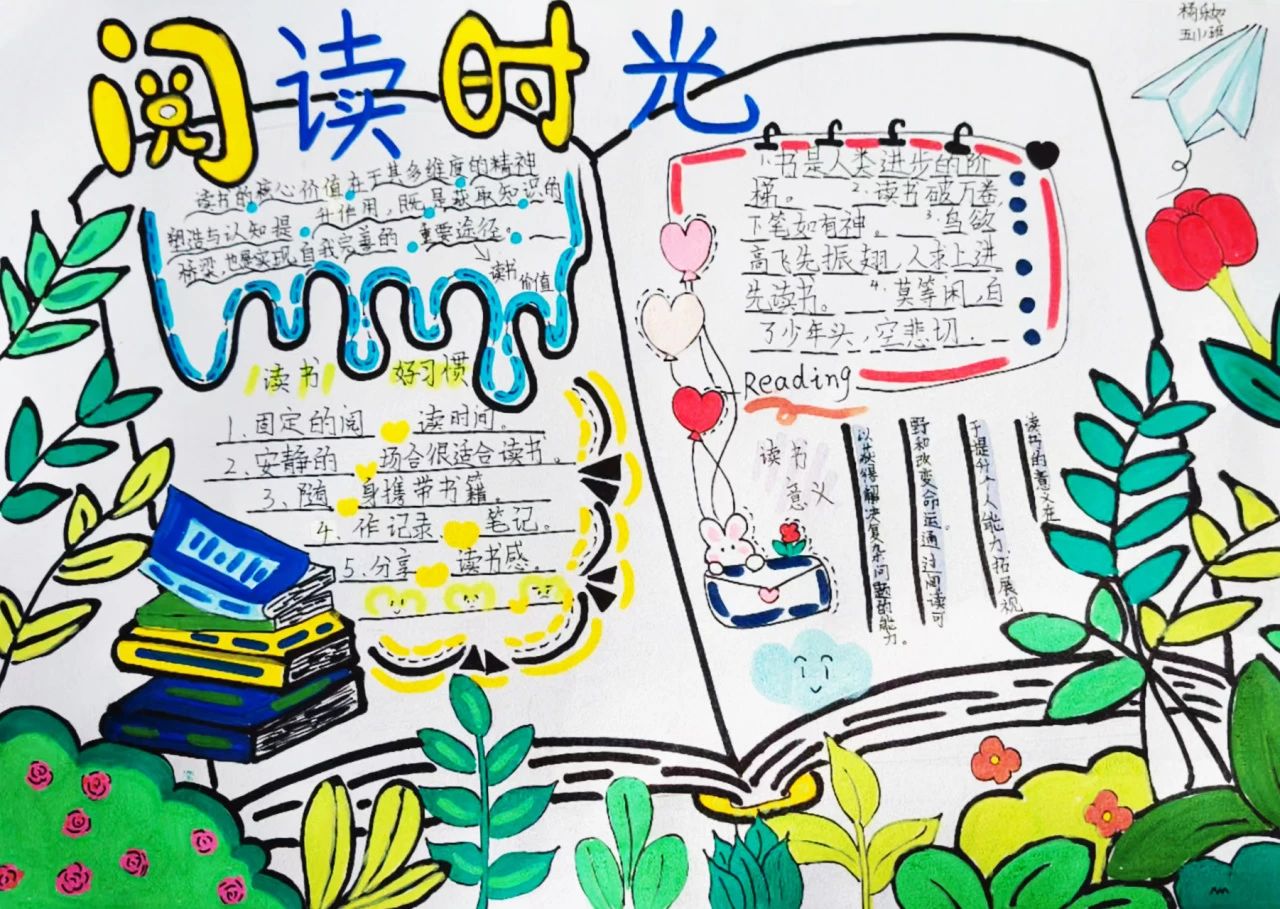 阅读时光
五(1)班
读书的核心价值在于其多维度的精神
塑造与认知提升作用,既是获取知识的
桥梁,也是实现自我完善的重要途径。
读书
价值
读书 好习惯
1.固定的阅读时间。
2.安静的场合很适合读书。
3.随身携带书籍。
4.作记录笔记。
5.分享读书感。
1.书是人类进步的阶
梯。 2.读书破万卷,
下笔如有神。 3.鸟欲
高飞先振翅,人求上进
先读书。 4.莫等闲,白
了少年头,空悲切.
Reading
读书
意义
读书的意义在
于提升个人能力、拓展视
野和改变命运。通过阅读可
以获得解决复杂问题的能力。